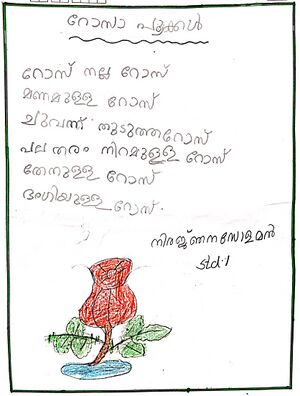 റോസാ പൂക്കൾ
റോസ് നല്ല റോസ്
മണമുള്ള റോസ്
ചുവന്ന് തുടുത്ത റോസ്
പല തരം നിറമുള്ള റോസ്
തേനുള്ള റോസ്
ഭംഗിയുള്ള റോസ്.
നിരഞ്ജന സോളമൻ
std.1